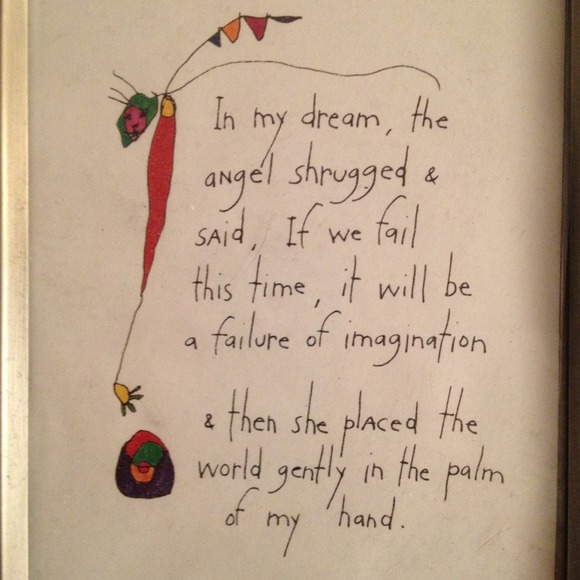 In my dream, the
angel shrugged &
said, If we fail
this time, it will be
a failure of imagination
& then she placed the
world gently in the palm
of my hand.